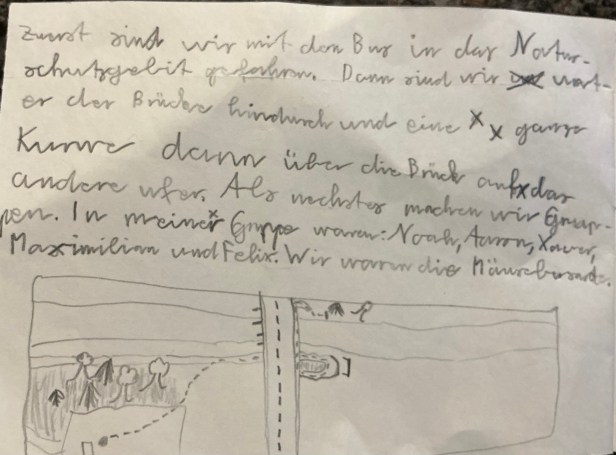 Zuerst sind wir mit den Bus in das Natur-
schutzgebit gefahren. Dann sind wir unt-
er der Brücke hindurch und eine x x ganze
Kurve dann über die Brück auf x das
andere ufer. Als nechstes machen wir Grup-
pen. In meiner x Gruppe waren: Noah, Aaron, Xaver,
Maximilian und Felix. Wir waren die Mäusebusarde.